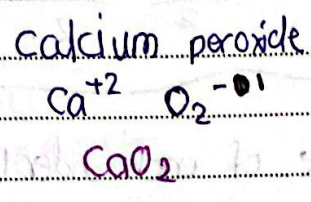 calcium peroxide
Ca⁺² O₂⁻¹
CaO₂